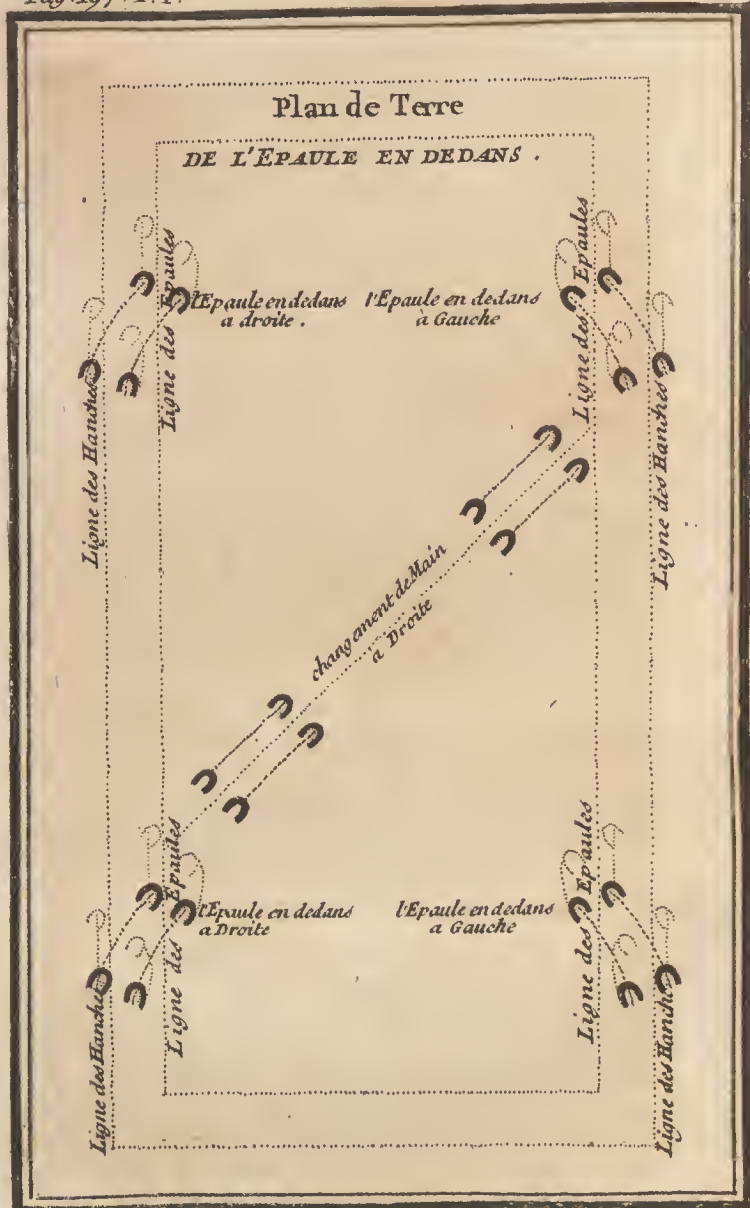 Plan de Terre
DE L'EPAULE EN DEDANS .
Ligne des Epaules
l'Epaule en dedans
a droite .
l'Epaule en dedans
à Gauche
Ligne des Epaules
Ligne des Hanches
Ligne des Hanches
changement de Main
a Droite
Ligne des Epaules
l'Epaule en dedans
a Droite
l'Epaule en dedans
a Gauche
Ligne des Epaules
Ligne des Hanches
Ligne des Hanches